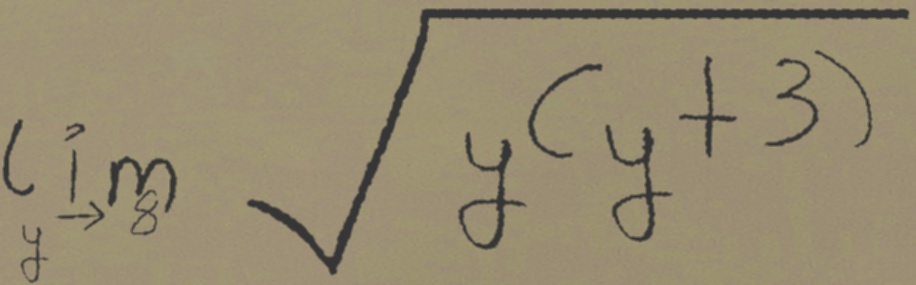 lim y→8 √y(y+3)